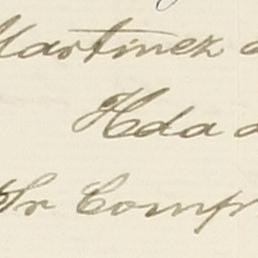 Martinez
Hda
Sr Comp